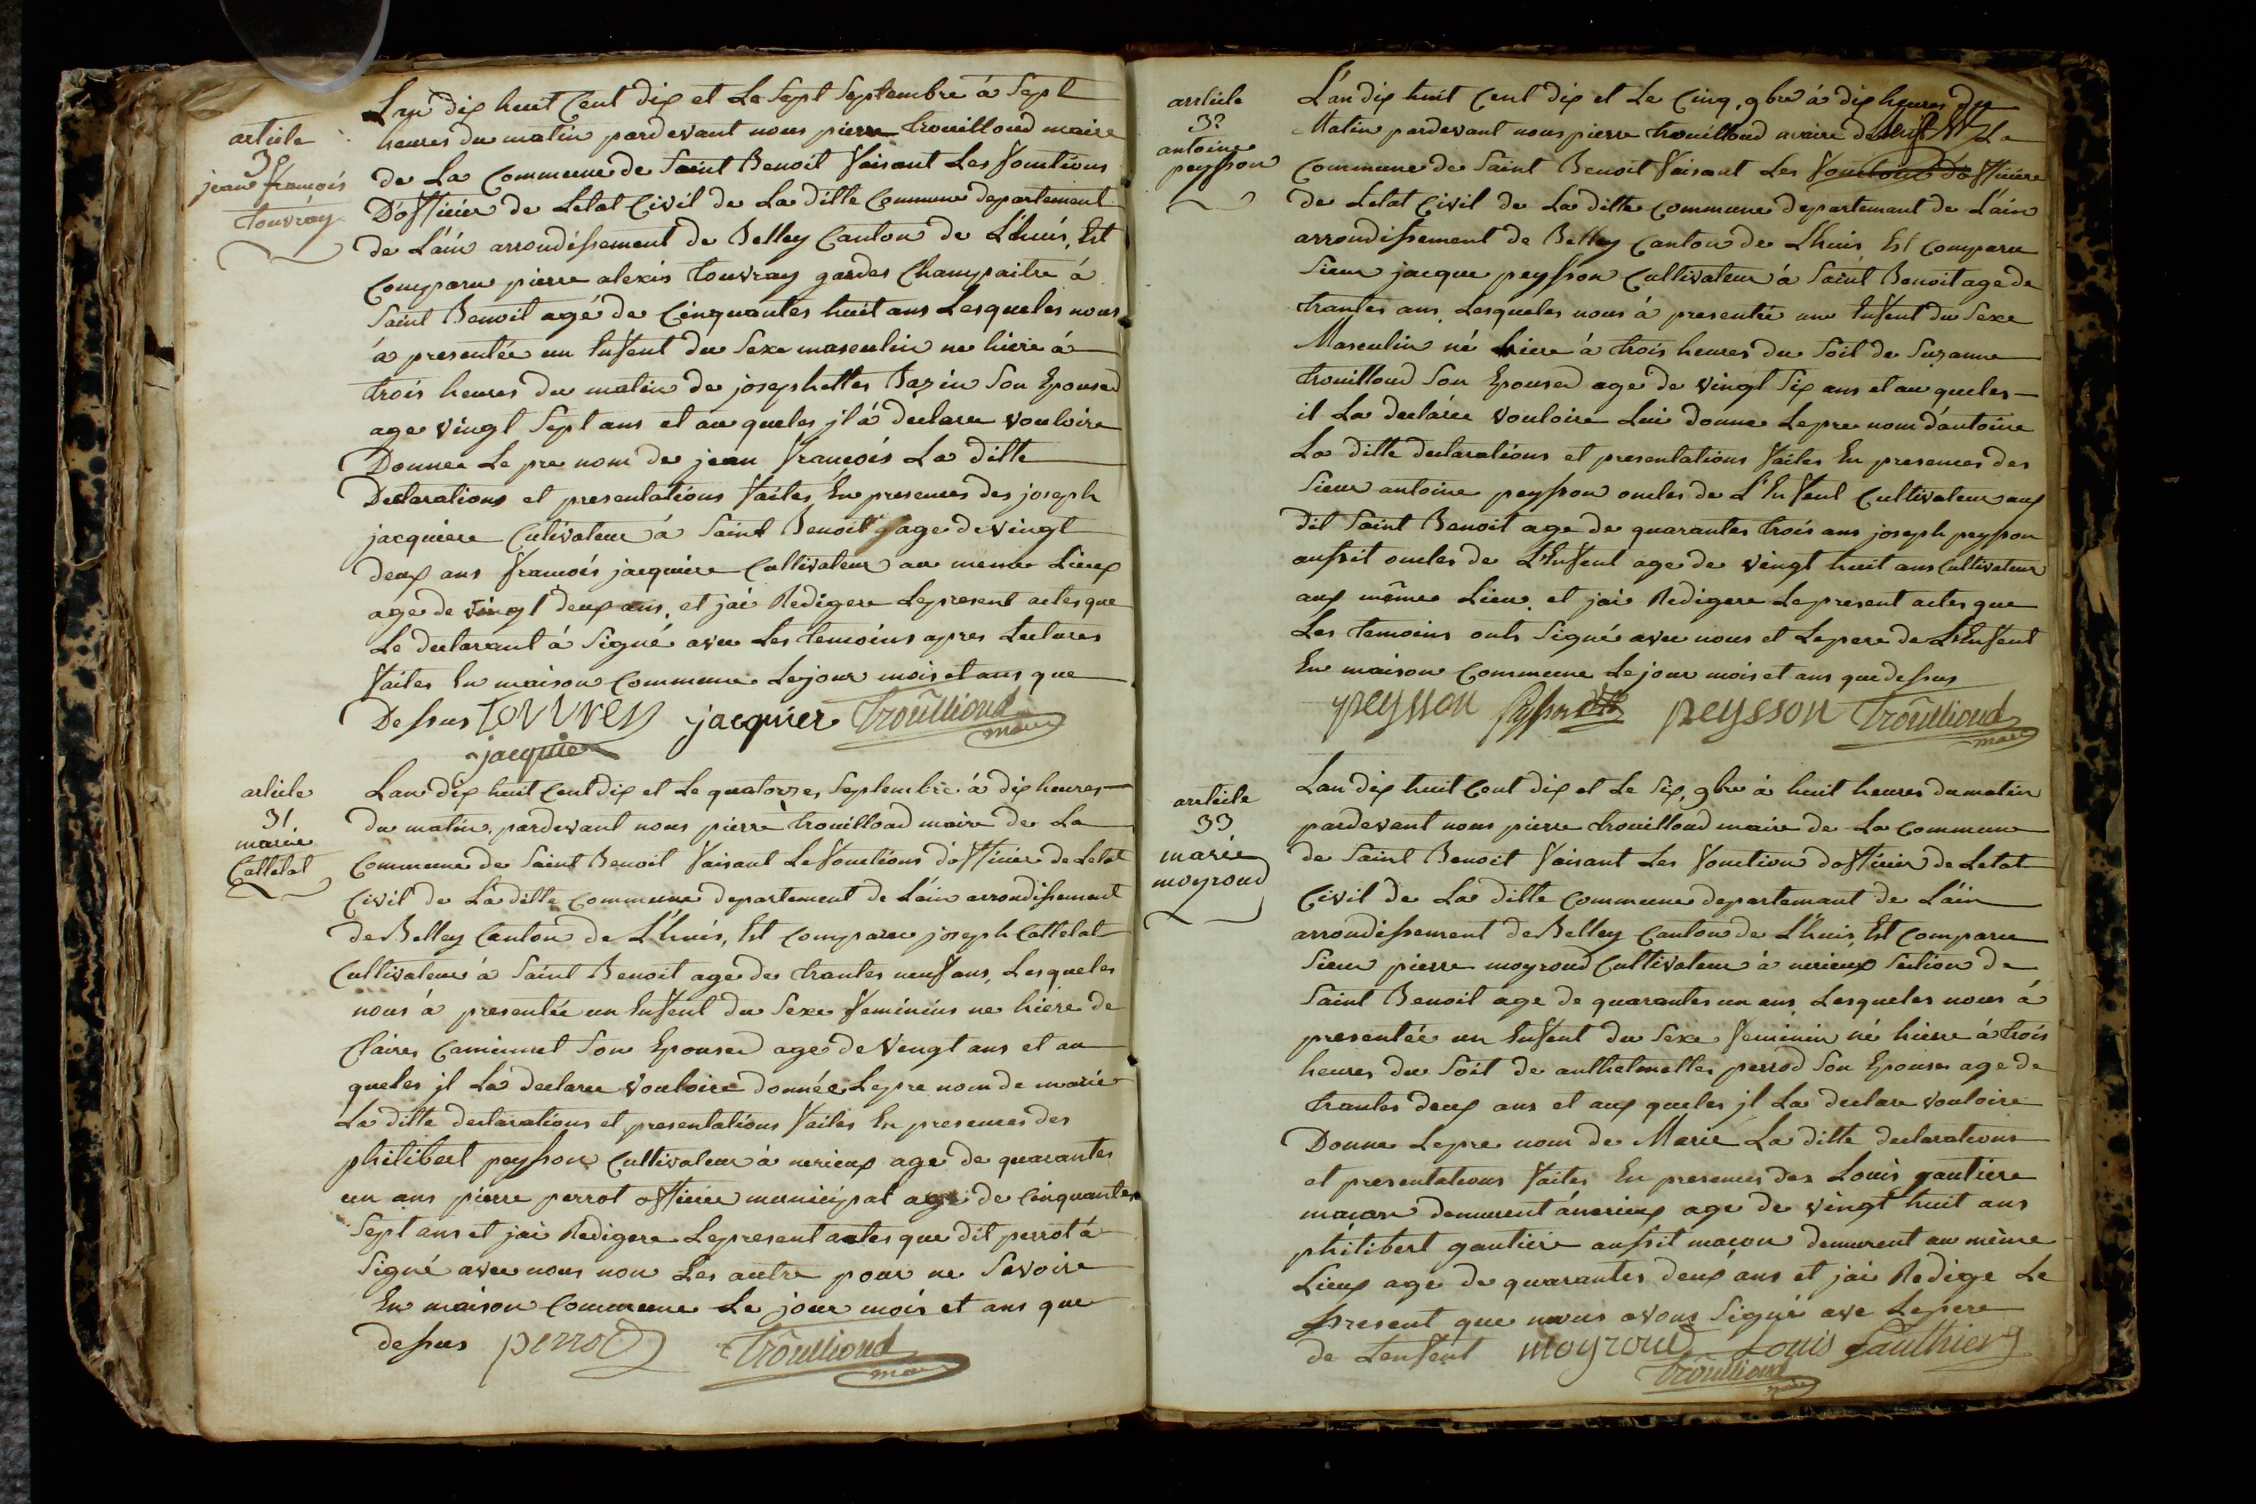 article
30
jean francois
touvray
Lan dix huit Cent dix et Le Sept Septembre à Sept
heures du matin pardevant nous pierre trouilloud maire
de La Commune de Saint Benoit faisant Les fonctions
D'officier de Letat Civil de La ditte Commune departement
de L'ain arrondissement de Belley Canton de L'huis, Est
Comparu pierre alexis touvray gardes Champaitre à
Saint Benoit agé de Cinquantes huit ans Lesqueles nous
à presentée un Enfent du Sexe masculin ne hiere à
trois heures du matin de josephettes Bazin Son Epoused
age vingt Sept ans et au queles jl à declare vouloire
Donnee Le pre nom de jean francois La ditte
Declarations et presentations faites En presences des joseph
jacquiere Cutivateur à Saint Benoit age de vingt
deux ans francois jacquiere Cultivateur au meme Lieux
age de vingt deux ans, et jai Redigere Lepresent actes que
Le declarant à Signé avec Les temoins apres Lectures
faites En maison Commune Lejour mois et ans que
Dessus touvrey jacquier trouilloud
maire
jacquier
article
31
marie
Cattelat
Lan dix huit Cent dix et Le quatorzes Septembre à dix heures
du matin, pardevant nous pierre trouilloud maire de La
Commune de Saint Benoit faisant Le fonctions d'officier de Letat
Civil de La ditte Commune departement de L'ain arrondissement
de Belley Canton de L'huis, Est Comparu joseph Cattelat
Cultivateur à Saint Benoit age de trantes neuf ans, Lesqueles
nous à presentée un Enfent du Sexe feminins ne hiere de
Claires Son Epoused age de vengt ans et au
queles jl La declaree vouloire donnée Le pre nom de marie
La ditte declarations et presentations faites En presences des
philibert peysson Cultivateur à nerieux age de quarantes
un ans pierre perrot officier municipal age de Cinquantes
Sept ans et jai Redigere Lepresent actes que dit perrot à
Signé avec nous non Les autre pour ne Savoire
En maison Commune Le jour mois et ans que
dessus perrot trouilloud
maire
article
32
antoine
peysson
L'an dix huit Cent dix et Le Cinq, 9bre à dix heures du
Matin pardevant nous pierre trouilloud maire de La
Commune de Saint Benoit faisant Les fonctions D'officiere
de Letat Civil de La ditte Commune departemant de L'ain
arrondissement de Belley Canton de L'huis Est Comparu
Sieur jacque peysson Cultivateur à Saint Benoit age de
trantes ans, Lesqueles nous à presentée un Enfent du Sexe
Masculin né hiere à trois heures du Soit de Suzanne
trouilloud Son Epoused age de vingt Six ans et au queles
il La declarée vouloire Lui donne Le pre nom d'antoine
La ditte declarations et presentations faites En presences des
Sieur antoine peysson oncles de L'Enfent Cultivateur aux
dit Saint Benoit age de quarantes trois ans joseph peysson
aussit oncles de L'Enfent age de vingt huit ans Cultivateur
aux même Lieu, et jai Redigere Lepresent actes que
Les temoins onts Signé avec nous et Lepere de L'Enfent
En maison Commune Lejour mois et ans que dessus
peysson peysson trouilloud
maire
article
33
marie
moyroud
Lan dix huit Cent dix et Le Six, 9bre à huit heures du matin
pardevent nous pierre trouilloud maire de La Commune
de Saint Benoit faisant Les fonction d'officier de Letat
Civil de La ditte Commune departemant de L'ain
arrondissement de Belley Canton de L'huis, Est Comparu
Sieur pierre moyroud Cultivateur à nerieux Section de
Saint Benoit age de quarantes un ans, Lesqueles nous à
presentée un Enfent du Sexe feminin né hiere à trois
heures du Soit de anthelmettes perrod Son Epouses age de
trantes deux ans et aux queles jl La declare vouloire
Donne Le pre nom de Marie La ditte declarations
et presentations faites En presences des Louis gautiere
macon demurent à nerieux age de vingt huit ans
philibert gautiere aussit macon demurent au mème
Lieux age de quarantes deux ans et jai Redige Le
present que nous avons Signé ave Lepere
de Lenfent moyroud Louis Gauthier
trouilloud
maire